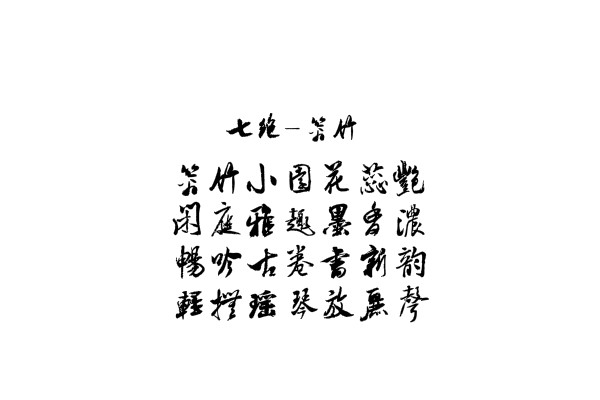 七絕－箬竹
箬竹小園花蕊艷
閑庭雅趣墨香濃
暢吟古卷書新韵
輕撫瑤琴放麗聲